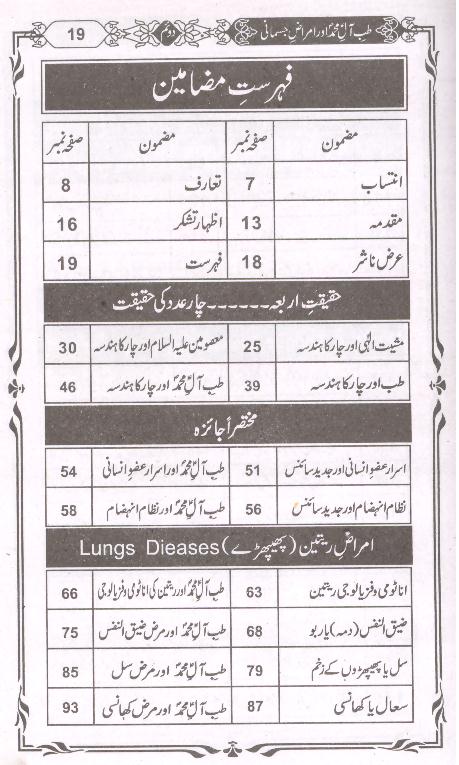 طب آلِ محمدؐ اور امراضِ جسمانی دوئم 19
فہرستِ مضامین
مضمون صفحہ نمبر مضمون صفحہ نمبر
انتساب 7 تعارف 8
مقدمہ 13 اظہار تشکر 16
عرض ناشر 18 فہرست 19
حقیقتِ اربعہ ۔۔۔۔۔۔ چار عدد کی حقیقت
مشیت الٰہی اور چار کا ہندسہ 25 معصومین علیہ السلام اور چار کا ہندسہ 30
طب اور چار کا ہندسہ 39 طب آلِ محمدؐ اور چار کا ہندسہ 46
مختصراً جائزہ
اسرار عضو انسانی اور جدید سائنس 51 طب آلِ محمدؐ اور اسرار عضو انسانی 54
نظام انہضام اور جدید سائنس 56 طب آلِ محمدؐ اور نظام انہضام 58
امراضِ ریتین (پھیپھڑے) Lungs Dieases
اناٹومی وفزیالوجی ریتین 63 طب آلِ محمدؐ اور ریتین کی اناٹومی وفزیالوجی 66
ضیق النفس (دمہ) یا ربو 68 طب آلِ محمدؐ اور مرض ضیق النفس 75
سل یا پھیپھڑوں کے زخم 79 طب آلِ محمدؐ اور مرض سل 85
سعال یا کھانسی 87 طب آلِ محمدؐ اور مرض کھانسی 93